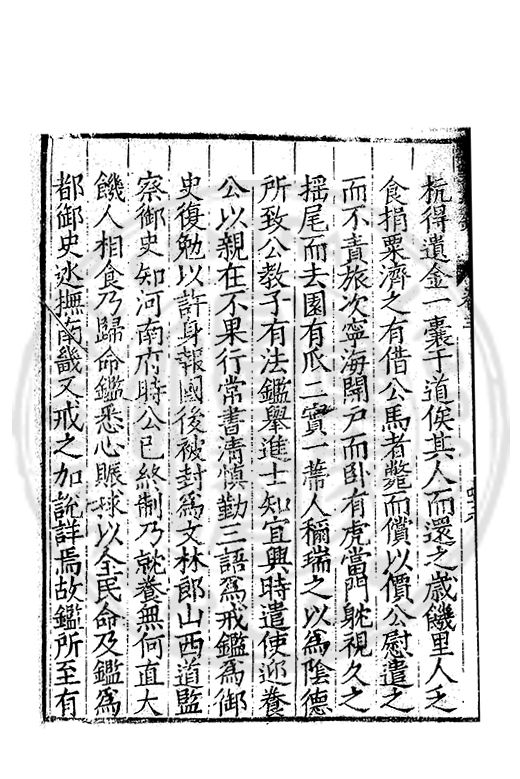 杭得遺金一囊于道俟其人而還之歳饑里人乏
食捐粟濟之有借公馬者斃而償以價公慰遣之
而不責旅次寧海開戸而卧有虎當門躭視久之
揺尾而去園有瓜二實一蔕人稱瑞之以爲陰德
所致公教子有法鑑舉進士知宜興時遣使迎養
公以親在不果行常書清慎勤三語爲戒鑑爲御
史復勉以許身報國後被封爲文林郎山西道監
察御史知河南府時公已終制乃就養無何直大
饑人相食乃歸命鑑悉心賑捄以全民命及鑑爲
都御史廵撫南畿又戒之加詵詳焉故鑑所至有